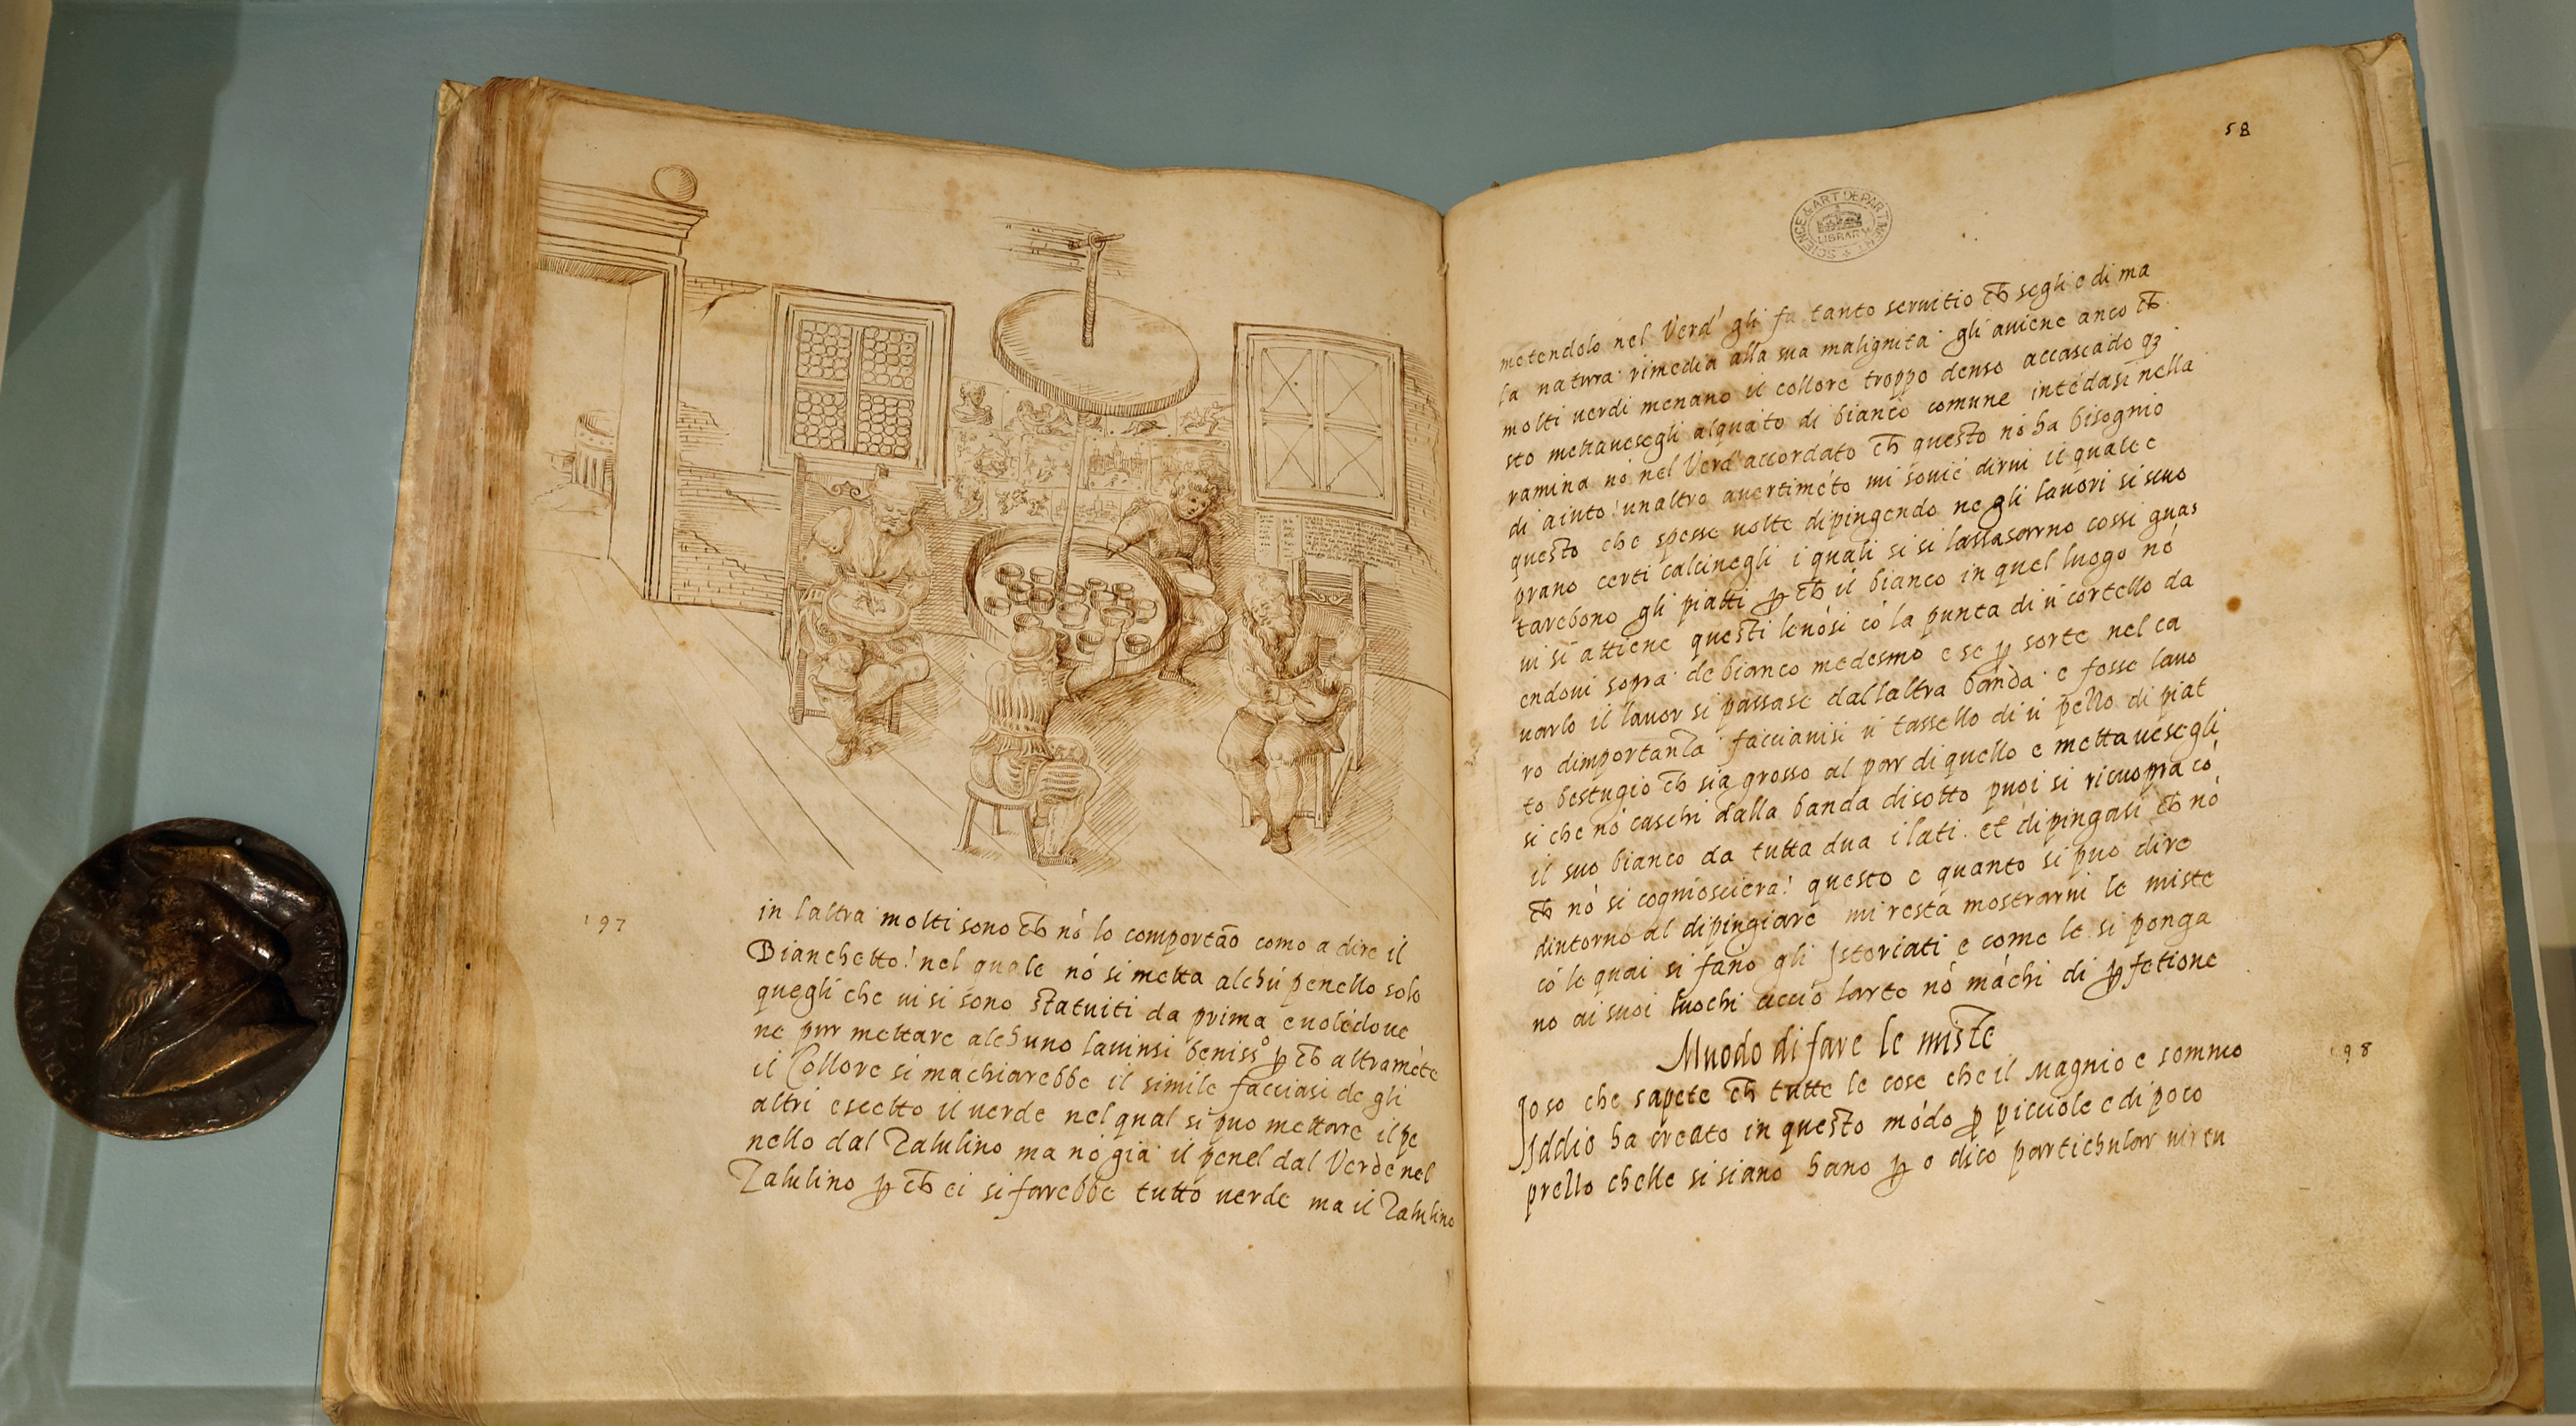 in laltra molti sono ch̄ nó lo comportāo como a dire il
Bianchetto! nel quale nó si metta alchú penello solo
quegli che ui si sono statuiti da prima e uolédoue
ne pur mettare alchuno lauinsi beniss° ꝑ ch̄ altraméte
il Collore si machiarebbe il simile facciasi de gli
altri escetto il uerde nel qual si puo mettare il pe
nello dal Zalulino ma nó gia il penel dal Verde nel
Zalulino ꝑ ch̄ ei si farebbe tutto uerde ma il Zalulino
197
58
SCIENCE & ART DEPARTMENT
LIBRARY
metendolo nel Verd' gli fa tanto seruitio ch̄ segli e di ma
la natura rimedia alla sua malignita gli auiene anco ch̄
molti uerdi menano il collore troppo denso accascādo q3
sto mettauesegli alquāto di bianco comune intédasi nella
ramina nó nel Verd' accordato ch̄ questo nó ha bisognio
di aiuto! unaltro auertiméto mi souié dirui il quale e
questo che spesse uolte dipingendo ne gli lauori si scuo
prano certi calcinegli i quali si si lassasorrno cossi guas
tarebono gli piatti ꝑ ch̄ il bianco in quel luogo nó
ui si attiene questi leuósi có la punta di ú cortello da
endoui sopra de bianco medesmo e se ꝑ sorte nel ca
uarlo il lauor si passase dallaltra banda e fosse lauo
ro dimportanza facciauisi ú tassello di ú pezzo di piat
to bestugio ch̄ sia grosso al par di quello e mettauesegli
si che nó caschi dalla banda disotto puoi si ricuopra có
il suo bianco da tutta dua i lati. et dipingasi ch̄ nó
ch̄ nó si cogniosciera! questo e quanto si puo dire
dintorno al dipingiare mi resta mostrarui le miste
có le quai si fano gli Istoriati e come le si ponga
no ai suoi luochi accio larte nó máchi di ꝑfetione
Muodo di fare le miste
Io so che sapete ch̄ tutte le cose che il Magnio e sommo
Iddio ha creato in questo módo ꝑ picciole e di poco
prezzo chelle si siano hano ꝑ o dico partichular uirtu
198